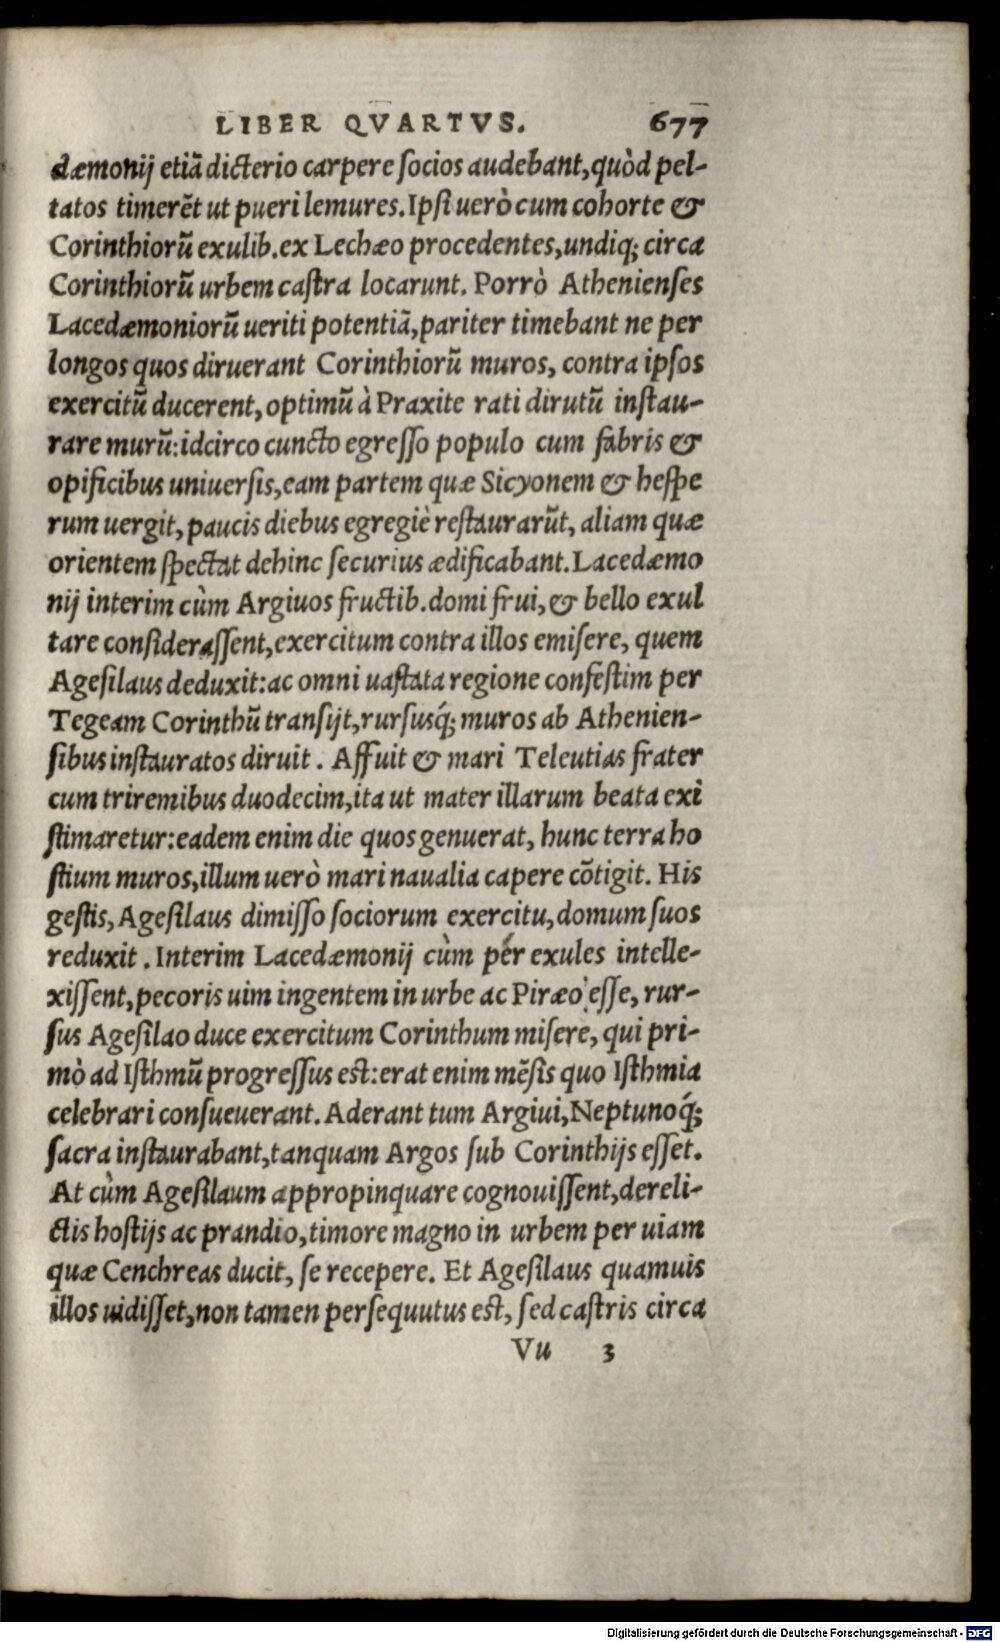 LIBER QVARTVS. 677
dæmonij etiã dicterio carpere ſocios audebant, quòd pel-
tatos timerẽt ut pueri lemures. Ipſi uerò cum cohorte &
Corinthiorũ exulib. ex Lechæo procedentes, undiq; circa
Corinthiorũ urbem caſtra locarunt. Porrò Athenienſes
Lacedæmoniorũ ueriti potentiã, pariter timebant ne per
longos quos diruerant Corinthiorũ muros, contra ipſos
exercitũ ducerent, optimũ à Praxite rati dirutũ inſtau-
rare murũ: idcirco cuncto egreſſo populo cum fabris &
opificibus uniuerſis, eam partem quæ Sicyonem & heſpe
rum uergit, paucis diebus egregiè reſtaurarũt, aliam quæ
orientem ſpectat dehinc ſecurius ædificabant. Lacedæmo
nij interim cùm Argiuos fructib. domi frui, & bello exul
tare conſideraſſent, exercitum contra illos emiſere, quem
Ageſilaus deduxit: ac omni uaſtata regione confeſtim per
Tegeam Corinthũ tranſijt, rurſusq́; muros ab Athenien-
ſibus inſtauratos diruit. Affuit & mari Teleutias frater
cum triremibus duodecim, ita ut mater illarum beata exi
ſtimaretur: eadem enim die quos genuerat, hunc terra ho
ſtium muros, illum uerò mari naualia capere cõtigit. His
geſtis, Ageſilaus dimiſſo ſociorum exercitu, domum ſuos
reduxit. Interim Lacedæmonij cùm per exules intelle-
xiſſent, pecoris uim ingentem in urbe ac Piræo eſſe, rur-
ſus Ageſilao duce exercitum Corinthum miſere, qui pri-
mò ad Iſthmũ progreſſus est: erat enim mẽſis quo Iſthmia
celebrari conſueuerant. Aderant tum Argiui, Neptunoq́;
ſacra inſtaurabant, tanquam Argos ſub Corinthijs eſſet.
At cùm Ageſilaum appropinquare cognouiſſent, dereli-
ctis hoſtijs ac prandio, timore magno in urbem per uiam
quæ Cenchreas ducit, ſe recepere. Et Ageſilaus quamuis
illos uidiſſet, non tamen perſequutus est, ſed caſtris circa
Vu 3
Digitalisierung gefördert durch die Deutsche Forschungsgemeinschaft - DFG